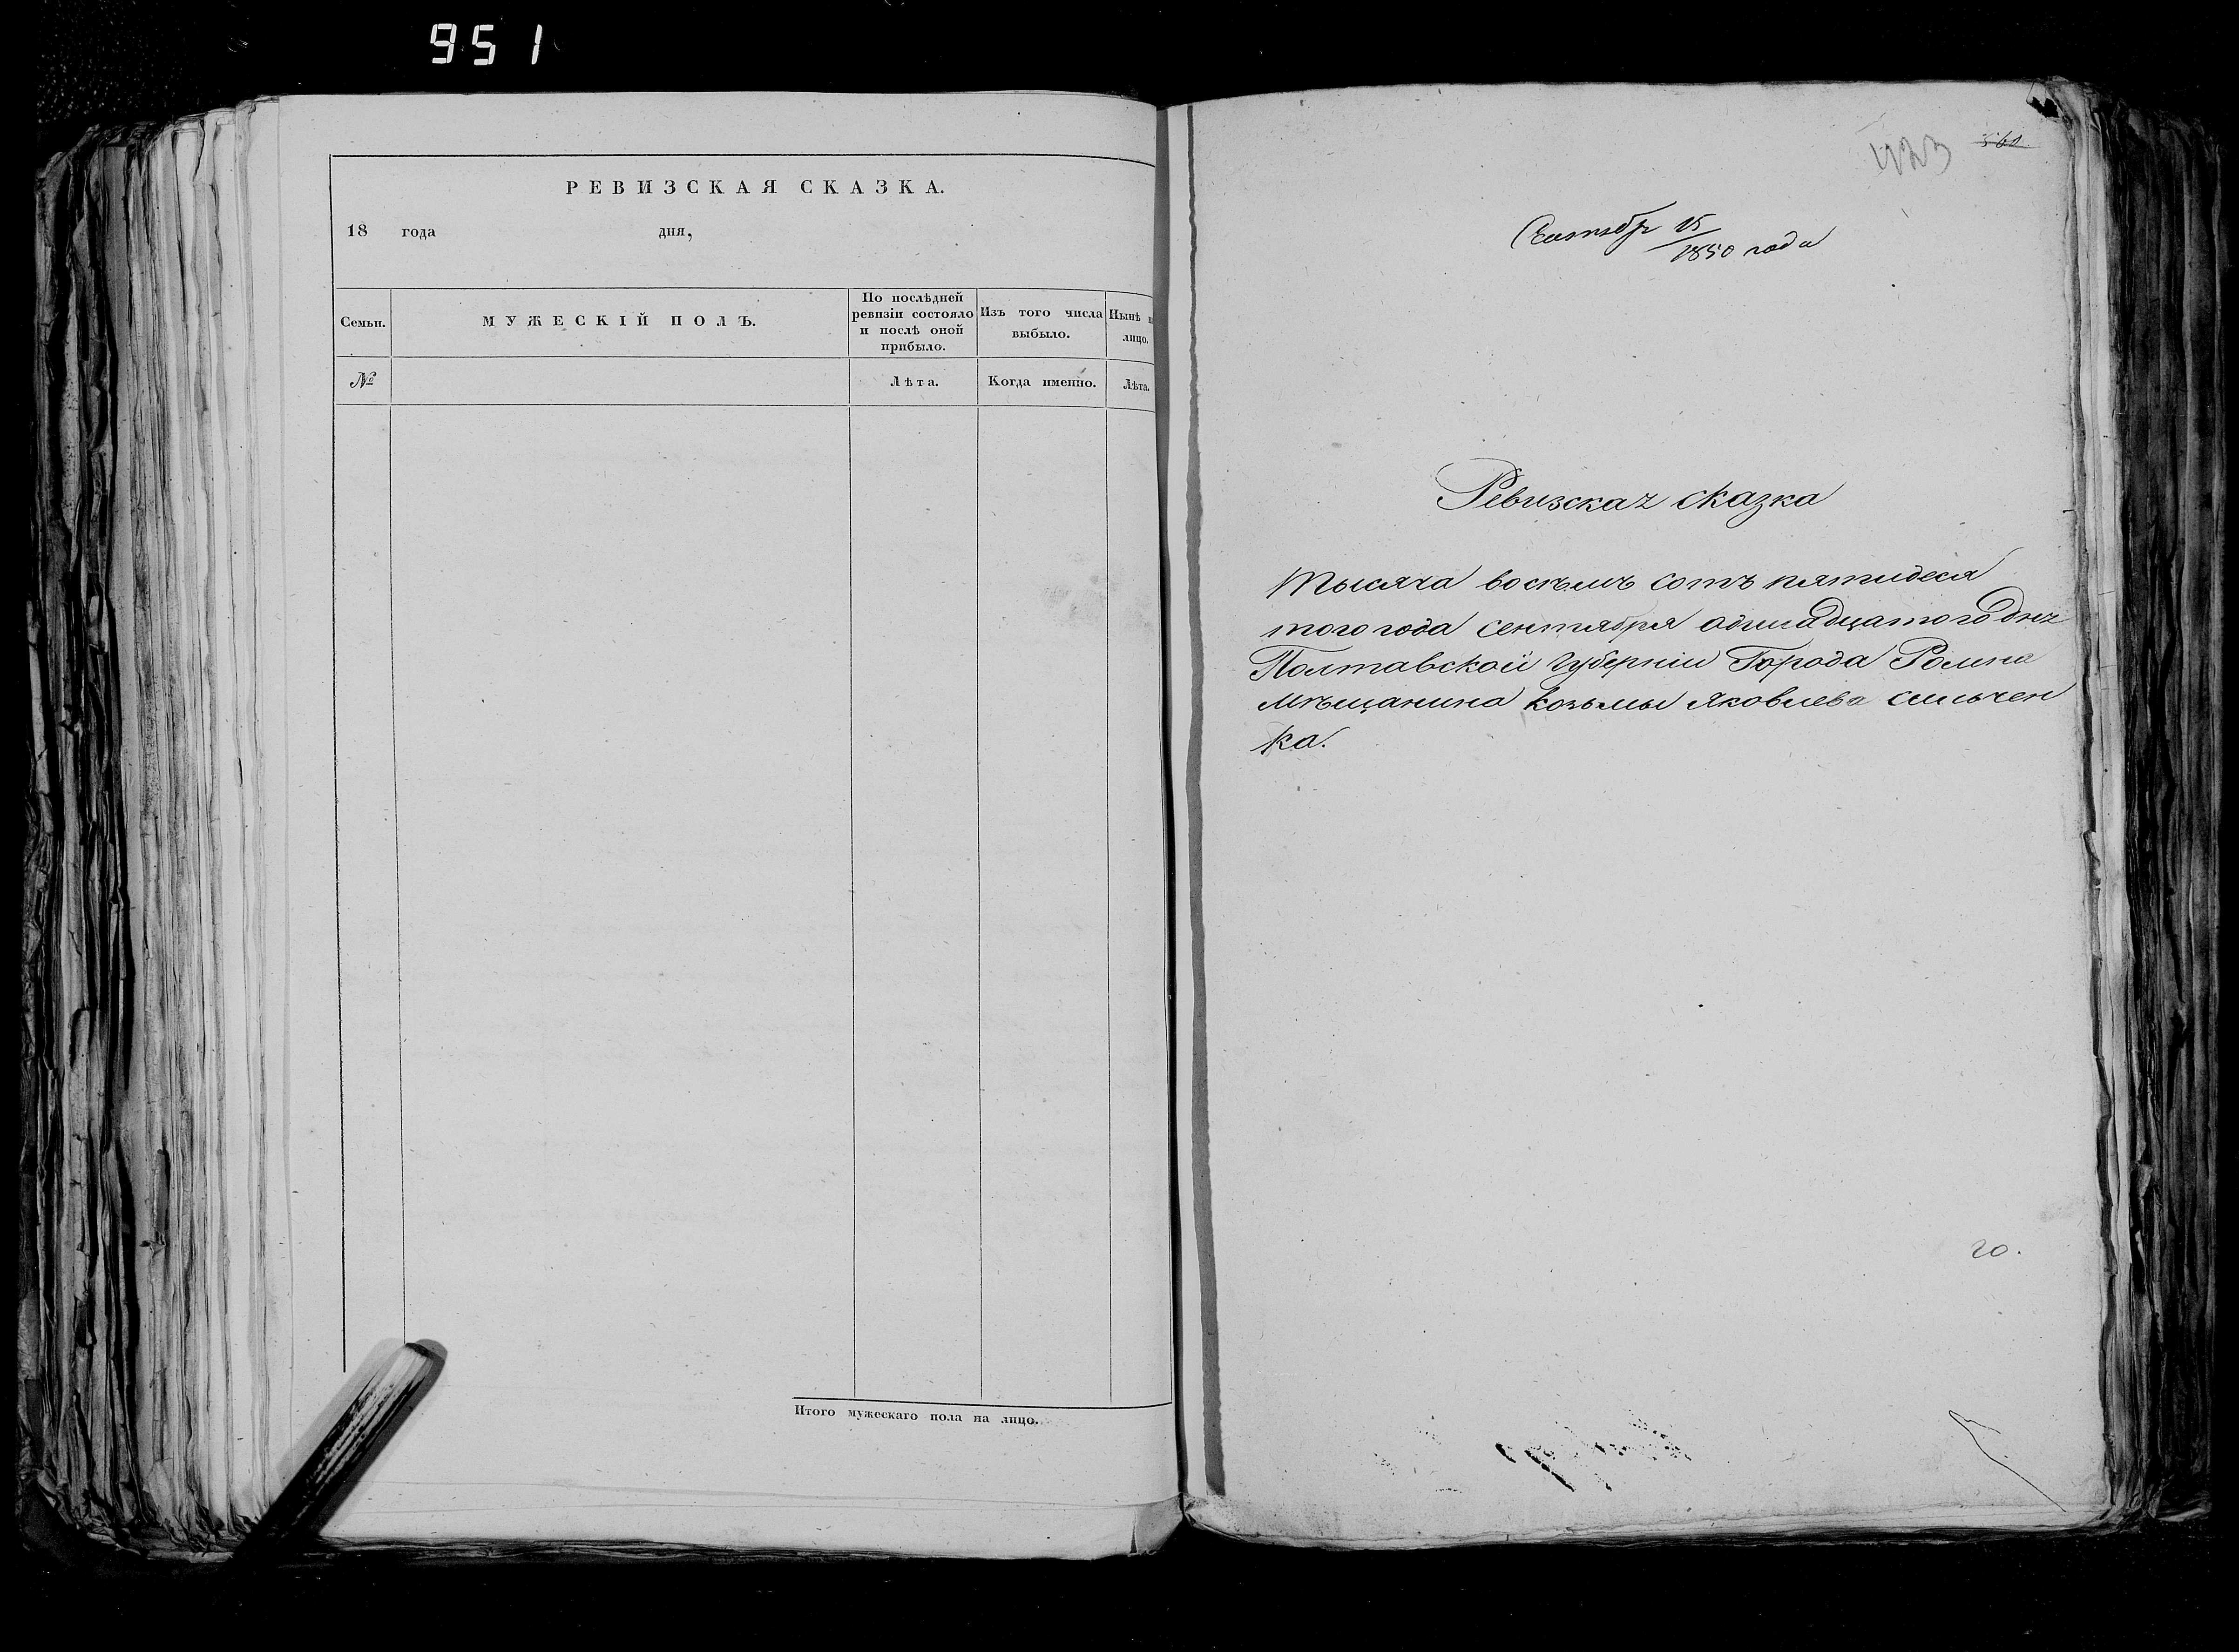 951
РЕВИЗСКАЯ СКАЗКА.
18 года дня,
Семьи.
МУЖЕСКІЙ ПОЛЪ.
По послѣдней
ревизіи состояло
и послѣ оной
прибыло.
Изъ того числа
выбыло.
Нынѣ н
лицо.
№
Лѣта.
Когда именно.
Лѣта.
Итого мужескаго пола на лицо.
423
560
15
1850 года
Ревизская сказка
Тысяча восемь сотъ пятидеся
того года сентября одинадцатого дня
Полтавской Губерніи Города Ромна
мѣщанина Козьмы Яковлева
ка.
20.